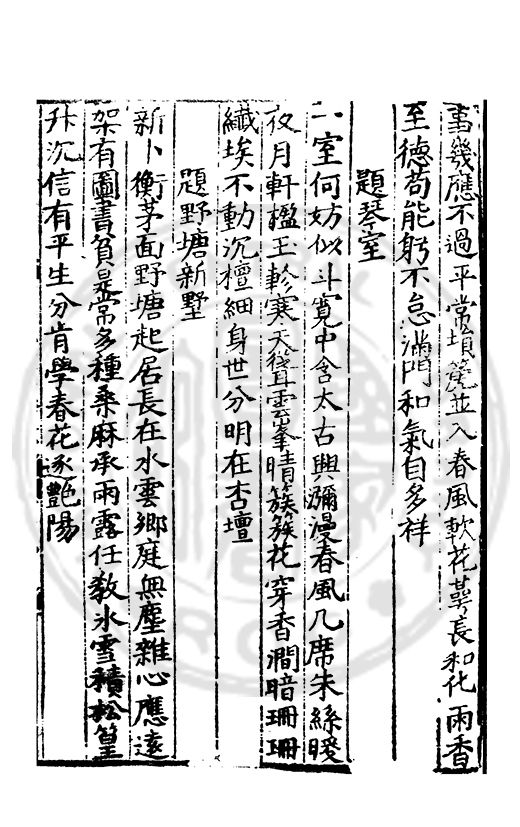 事幾應不過平常埙篪並入春風軟花萼長和化雨香
至德苟能躬不怠滿門和氣自多祥
題琴室
一室何妨似斗寬中含太古興瀰漫春風几席朱絲暖
夜月軒楹玉軫寒天聳雲峯晴簇簇花穿香澗暗珊珊
纖埃不動沉檀細身世分明在杏壇
題野塘新墅
新卜衡茅面野塘起居長在水雲鄉庭無塵雜心應遠
架有圖書貧是常多種桑麻承雨露任教氷雪積松篁
升沉信有平生分肯學春花逐艷陽